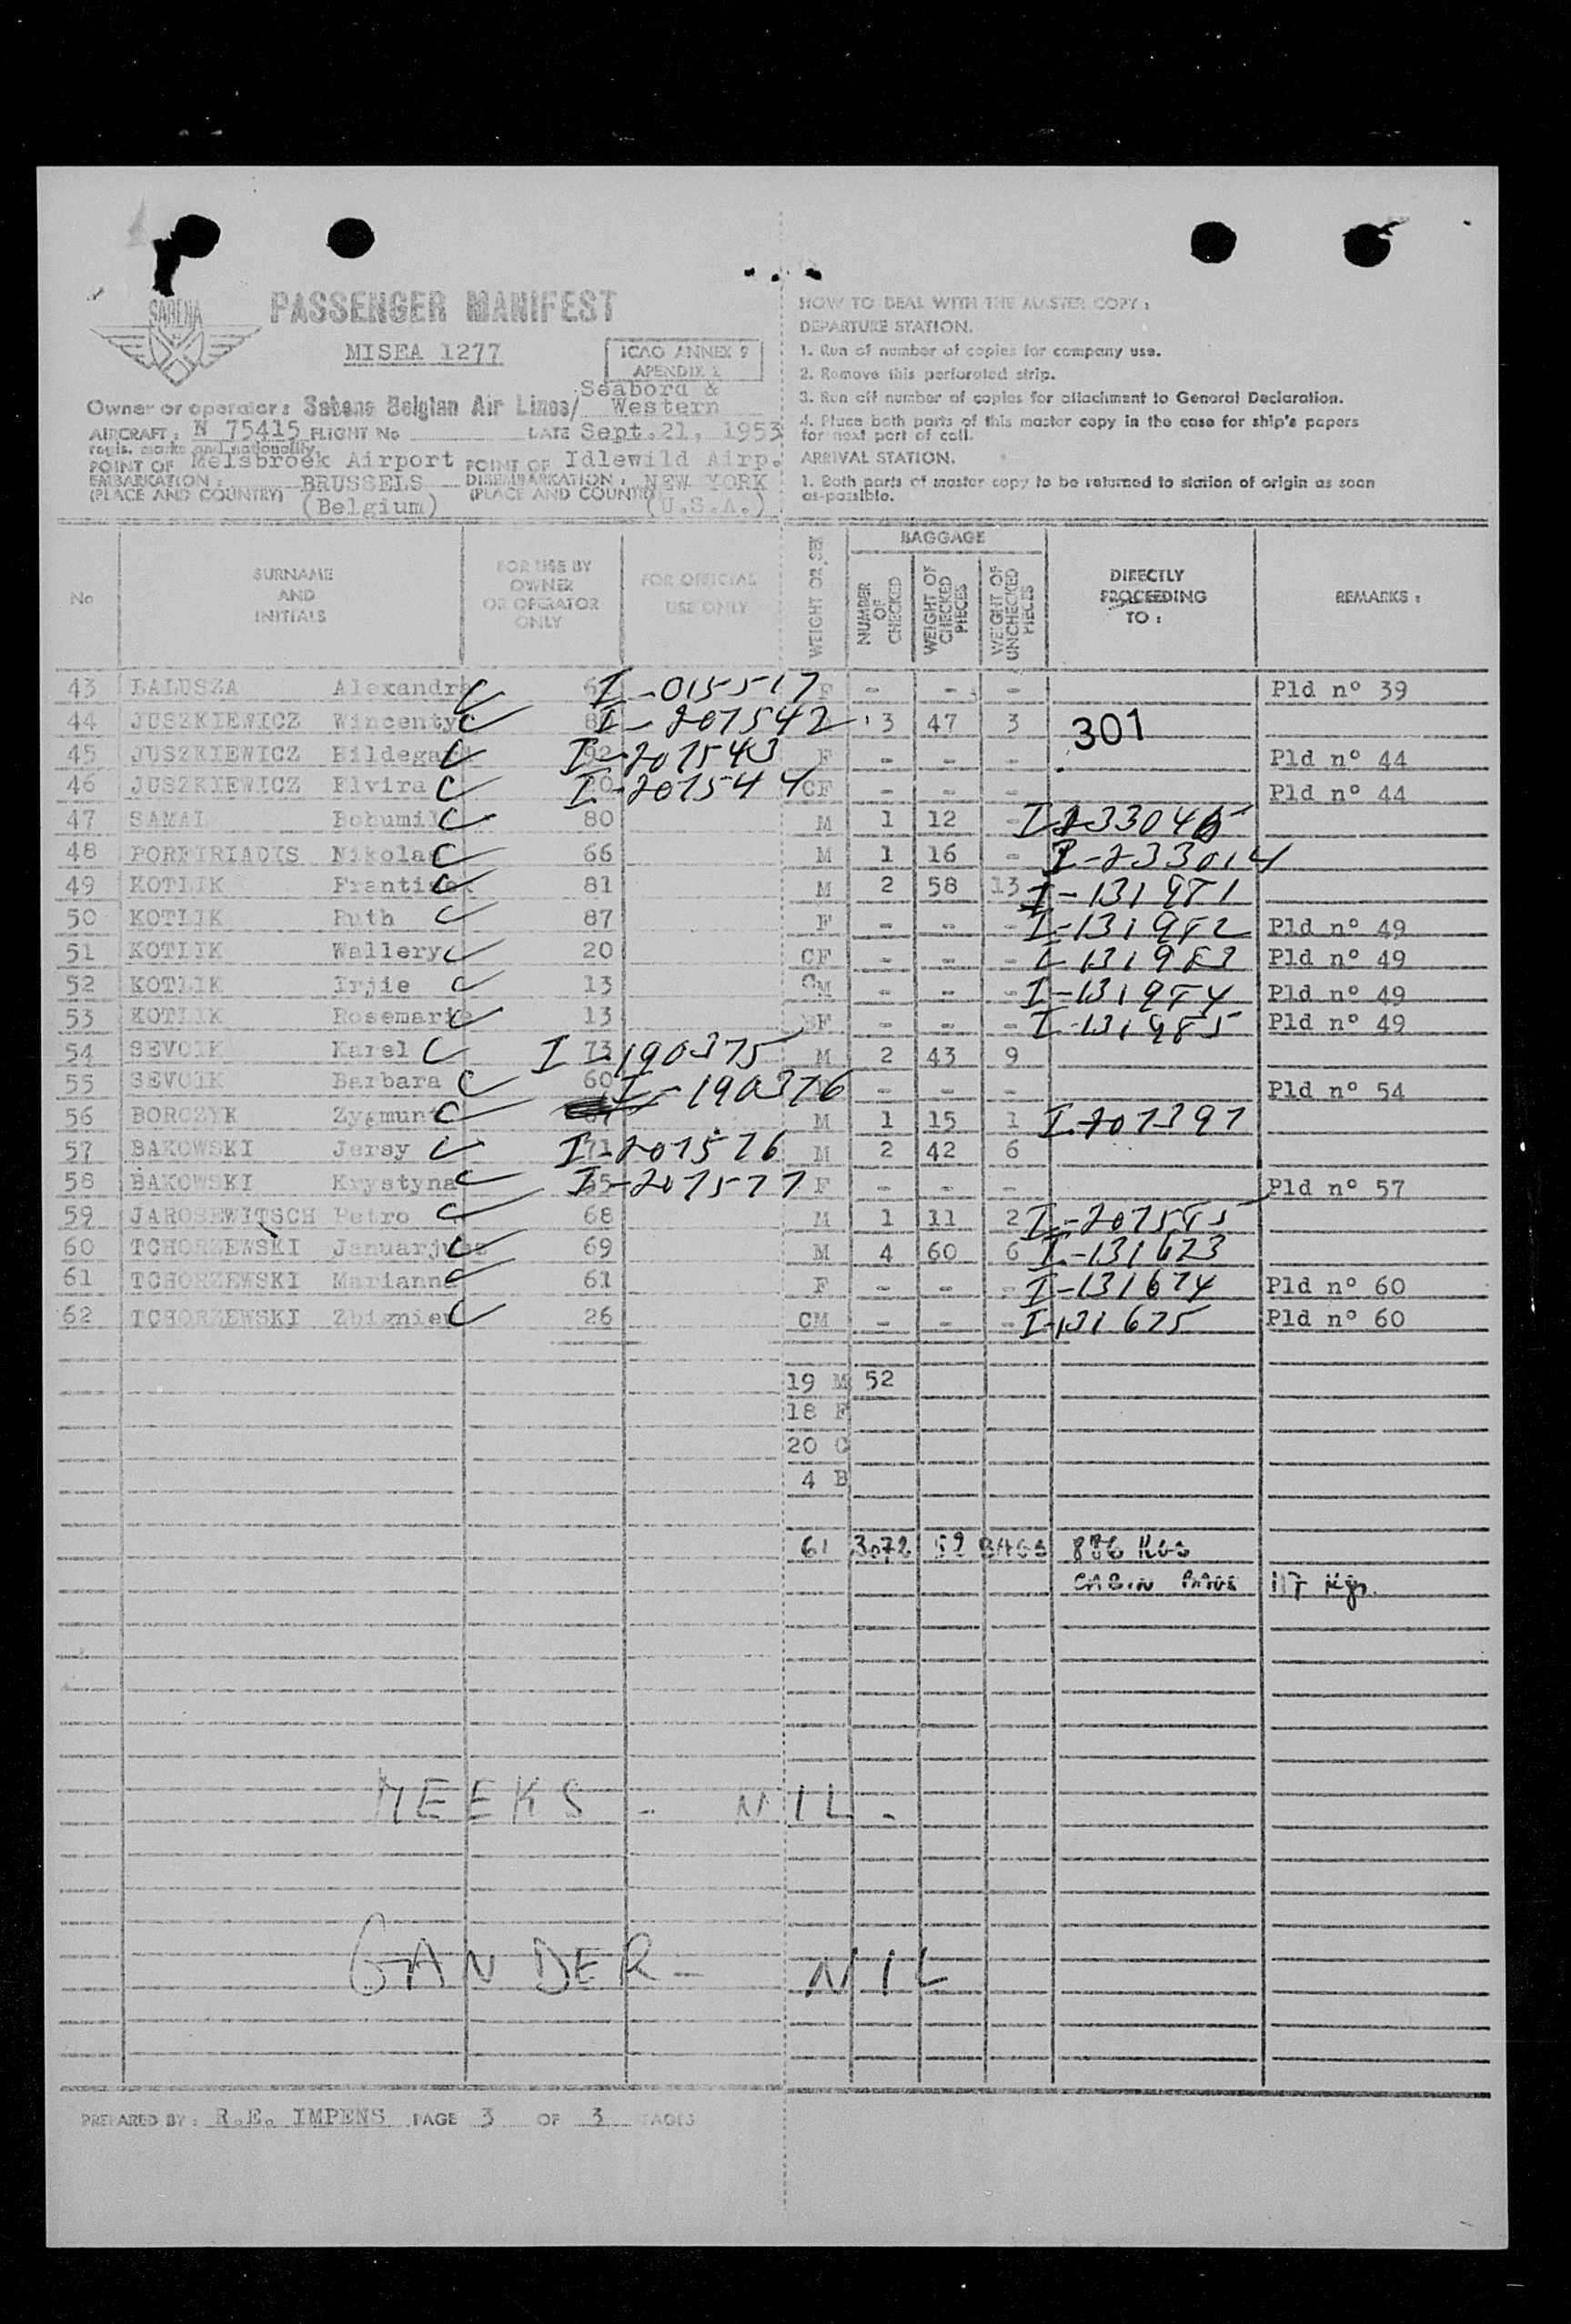 SABENA
PASSENGER MANIFEST
MISEA 1277
ICAO ANNEX 9
APENDIX 2
Owner or operator: Sabena Belgian Air Lines/ Seabord & Western
AIRCRAFT: N 75415 FLIGHT No DATE Sept.21, 1953
regis. marks and nationality
POINT OF EMBARKATION: Melsbroek Airport POINT OF DISEMBARKATION: Idlewild Airp.
(PLACE AND COUNTRY) BRUSSELS (PLACE AND COUNTRY) NEW YORK
(Belgium) (U.S.A.)
HOW TO DEAL WITH THE MASTER COPY:
DEPARTURE STATION.
1. Run of number of copies for company use.
2. Remove this perforated strip.
3. Run off number of copies for attachment to General Declaration.
4. Place both parts of this master copy in the case for ship's papers
for next port of call.
ARRIVAL STATION.
1. Both parts of master copy to be returned to station of origin as soon
as possible.
No
SURNAME AND INITIALS
FOR USE BY OWNER OR OPERATOR ONLY
FOR OFFICIAL USE ONLY
WEIGHT OR SEX
BAGGAGE
NUMBER OF CHECKED
WEIGHT OF CHECKED PIECES
WEIGHT OF UNCHECKED PIECES
DIRECTLY PROCEEDING TO:
REMARKS:
43 BALUSZA Alexandra I-015517 F - - - Pld nº 39
44 JUSZKIEWICZ Wincenty I-207542 3 47 3 301
45 JUSZKIEWICZ Hildegard 92 I-207543 F - - - Pld nº 44
46 JUSZKIEWICZ Elvira I-207544 CF - - - Pld nº 44
47 SAMAL Bohumil 80 M 1 12 -
48 PORFIRIADIS Nikolas 66 M 1 16 - I-233014
49 KOTLIK Frantisek 81 M 2 58 13 I-131981
50 KOTLIK Ruth 87 F - - - I-131982 Pld nº 49
51 KOTLIK Wallery 20 CF - - - I-131983 Pld nº 49
52 KOTLIK Irjie 13 CM - - - I-131984 Pld nº 49
53 KOTLIK Rosemarie 13 BF - - - I-131985 Pld nº 49
54 SEVCIK Karel 73 I-190375 M 2 43 9
55 SEVCIK Barbara 60 I-190376 - - - Pld nº 54
56 BORCZYK Zygmunt M 1 15 1 I-207397
57 BAKOWSKI Jersy 71 I-207576 M 2 42 6
58 BAKOWSKI Krystyna I-207577 F - - - Pld nº 57
59 JAROSEWITSCH Petro 68 M 1 11 2 I-207585
60 TCHORZEWSKI Januarjusz 69 M 4 60 6 I-131673
61 TCHORZEWSKI Marianna 61 F - - - I-131674 Pld nº 60
62 TCHORZEWSKI Zbigniew 26 CM - - - I-131675 Pld nº 60
19 M 52
18 F
20 C
4 B
61 3072 52 BAGS 886 KGS
CABIN BAGS 117 Kgs.
MEEKS - NIL -
GANDER - NIL
PREPARED BY: R.E. IMPENS PAGE 3 OF 3 PAGES